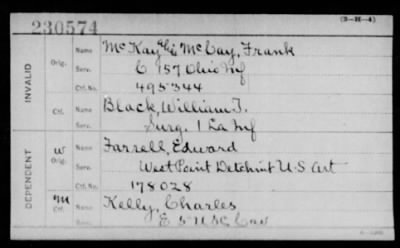 230574
(3-H-4)
INVALID
Orig. Name McKay McCay, Frank
Serv. C 157 Ohio Inf
Ctf. No. 495344
Ctf. Name Black, William T.
Serv. Surg. 1 La Inf
DEPENDENT
W Orig. Name Farrell, Edward
Serv. West Point Detchmt U.S. Art
Ctf. No. 178028
M Ctf. Name Kelly, Charles
Serv. E 5 U S C Cav